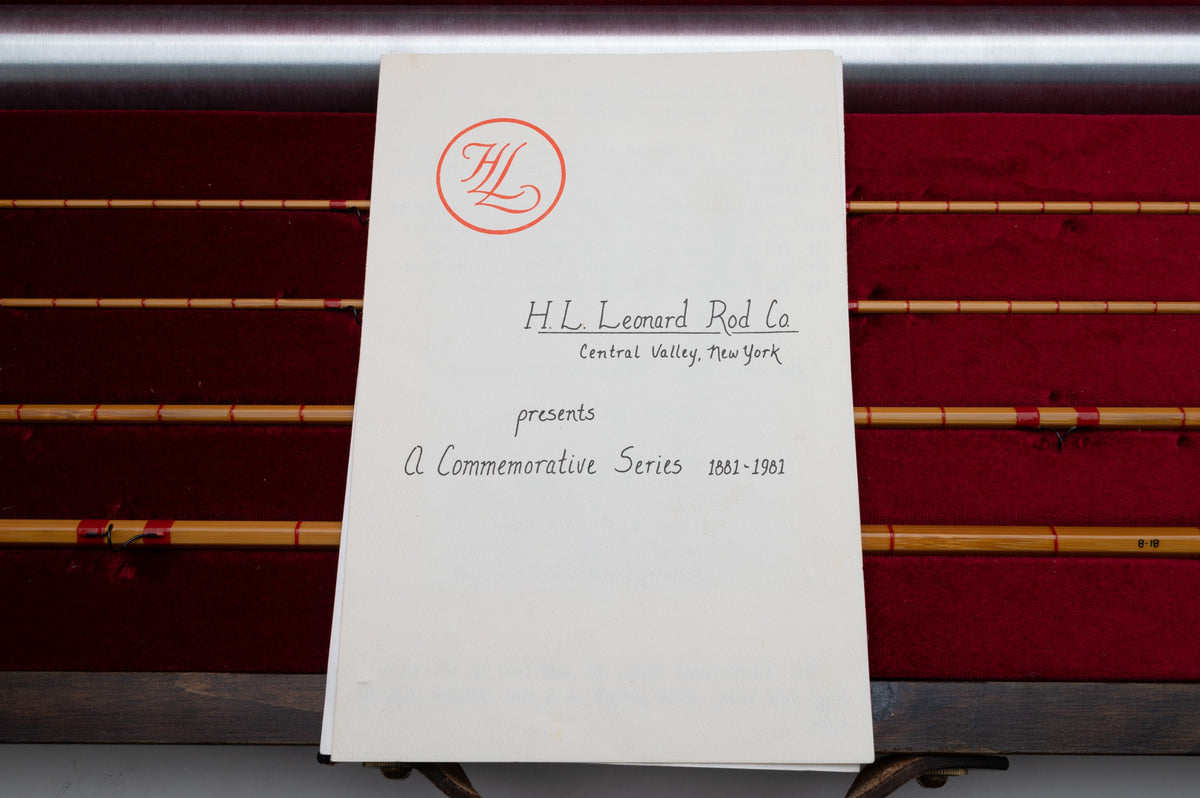 HL
H. L. Leonard Rod Co.
Central Valley, New York
presents
A Commemorative Series 1881-1981
8-18